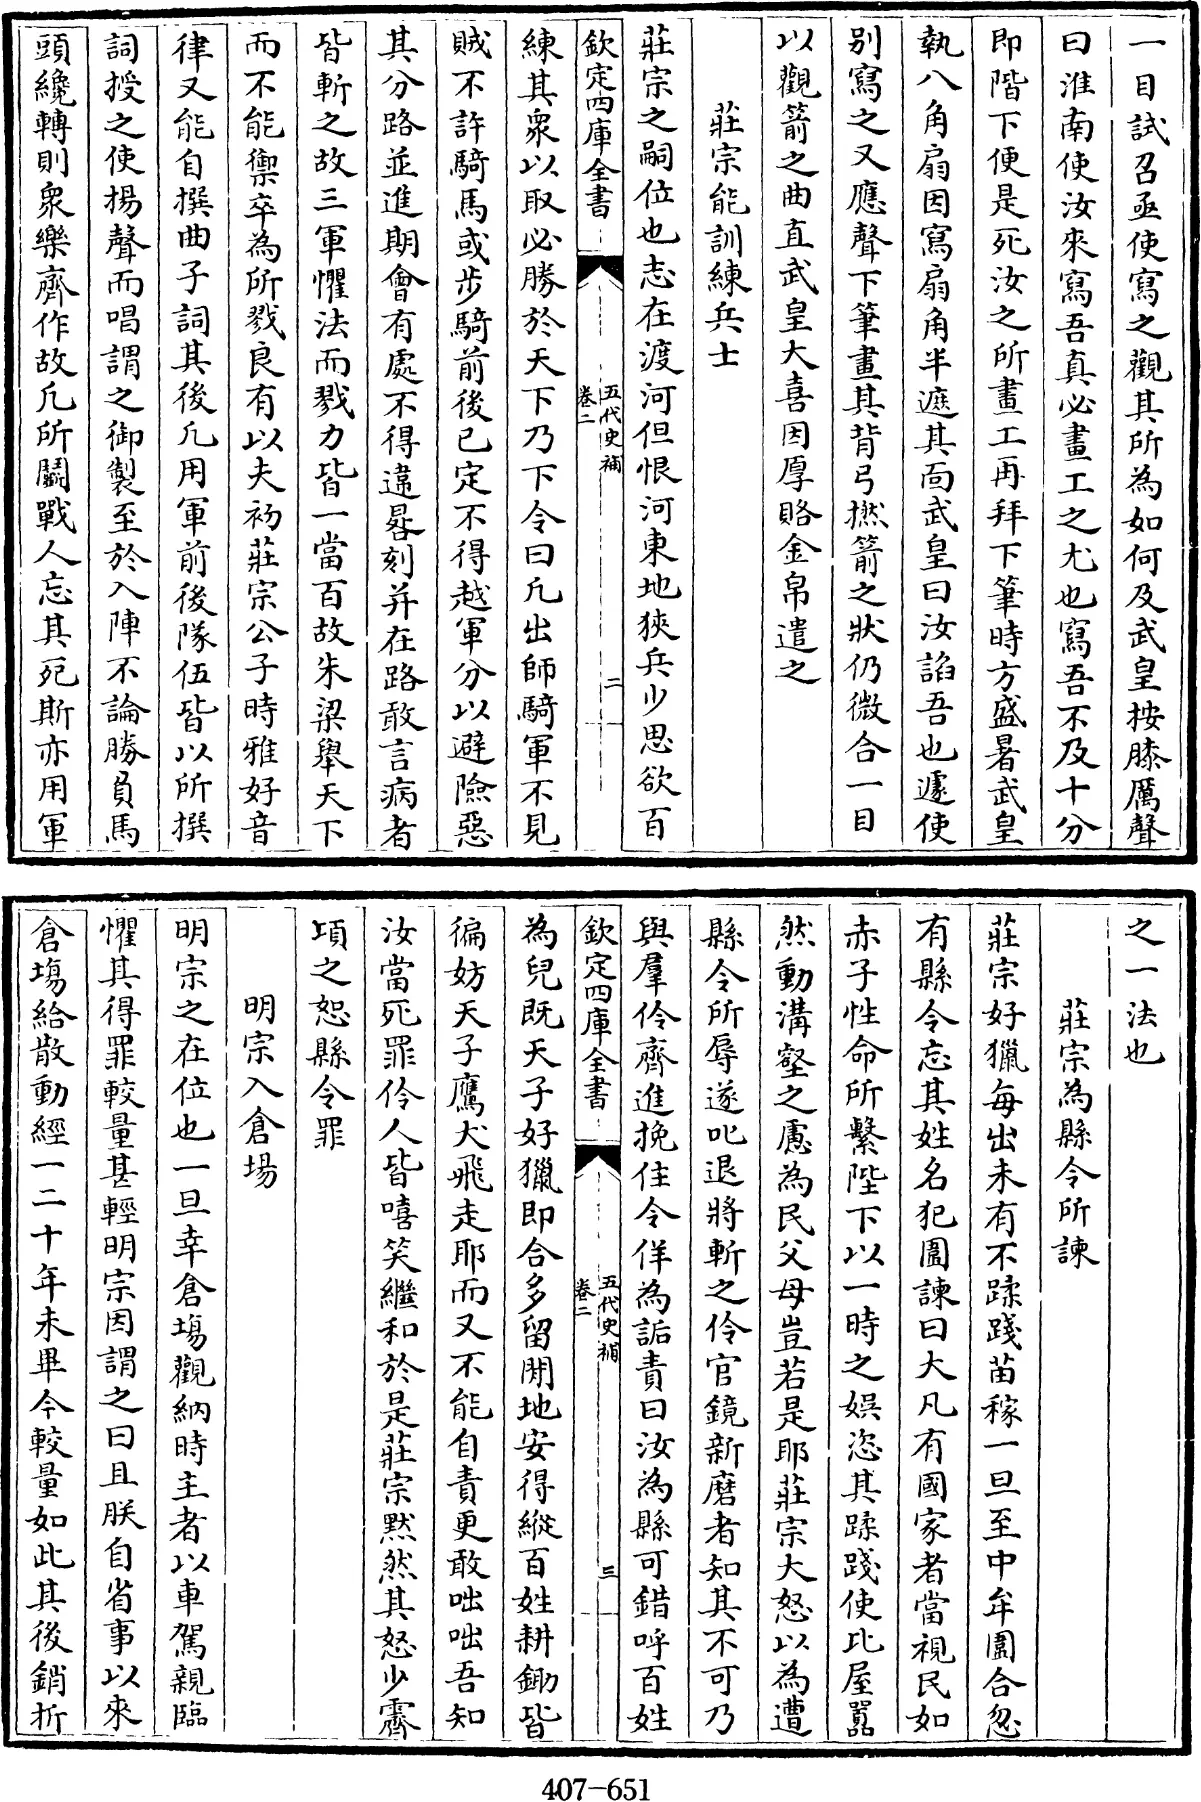 一目試召亟使寫之觀其所為如何及武皇按膝厲聲
曰淮南使汝來寫吾真必畫工之尤也寫吾不及十分
即階下便是死汝之所畫工再拜下筆時方盛暑武皇
執八角扇因寫扇角半遮其面武皇曰汝諂吾也遽使
别寫之又應聲下筆畫其背弓撚箭之狀仍微合一目
以觀箭之曲直武皇大喜因厚賂金帛遣之
莊宗能訓練兵士
莊宗之嗣位也志在渡河但恨河東地狹兵少思欲百
欽定四庫全書
五代史補
卷二
二
練其衆以取必勝於天下乃下令曰凡出師騎軍不見
賊不許騎馬或步騎前後已定不得越軍分以避險惡
其分路並進期會有處不得違晷刻并在路敢言病者
皆斬之故三軍懼法而戮力皆一當百故朱梁舉天下
而不能禦卒為所戮良有以夫初莊宗公子時雅好音
律又能自撰曲子詞其後凡用軍前後隊伍皆以所撰
詞授之使揚聲而唱謂之御製至於入陣不論勝負馬
頭纔轉則衆樂齊作故凡所鬭戰人忘其死斯亦用軍
之一法也
莊宗為縣令所諫
莊宗好獵每出未有不蹂踐苗稼一旦至中牟圍合忽
有縣令忘其姓名犯圍諫曰大凡有國家者當視民如
赤子性命所繫陛下以一時之娛恣其蹂踐使比屋嚣
然動溝壑之慮為民父母豈若是耶莊宗大怒以為遭
縣令所辱遂叱退將斬之伶官鏡新磨者知其不可乃
與羣伶齊進挽住令佯為詬責曰汝為縣可錯呼百姓
欽定四庫全書
五代史補
卷二
三
為兒既天子好獵即合多留閒地安得縱百姓耕鋤皆
徧妨天子鷹犬飛走耶而又不能自責更敢咄咄吾知
汝當死罪伶人皆嘻笑繼和於是莊宗默然其怒少霽
頃之恕縣令罪
明宗入倉場
明宗之在位也一旦幸倉塲觀納時主者以車駕親臨
懼其得罪較量甚輕明宗因謂之曰且朕自省事以來
倉塲給散動經一二十年未畢今較量如此其後銷折
407-651